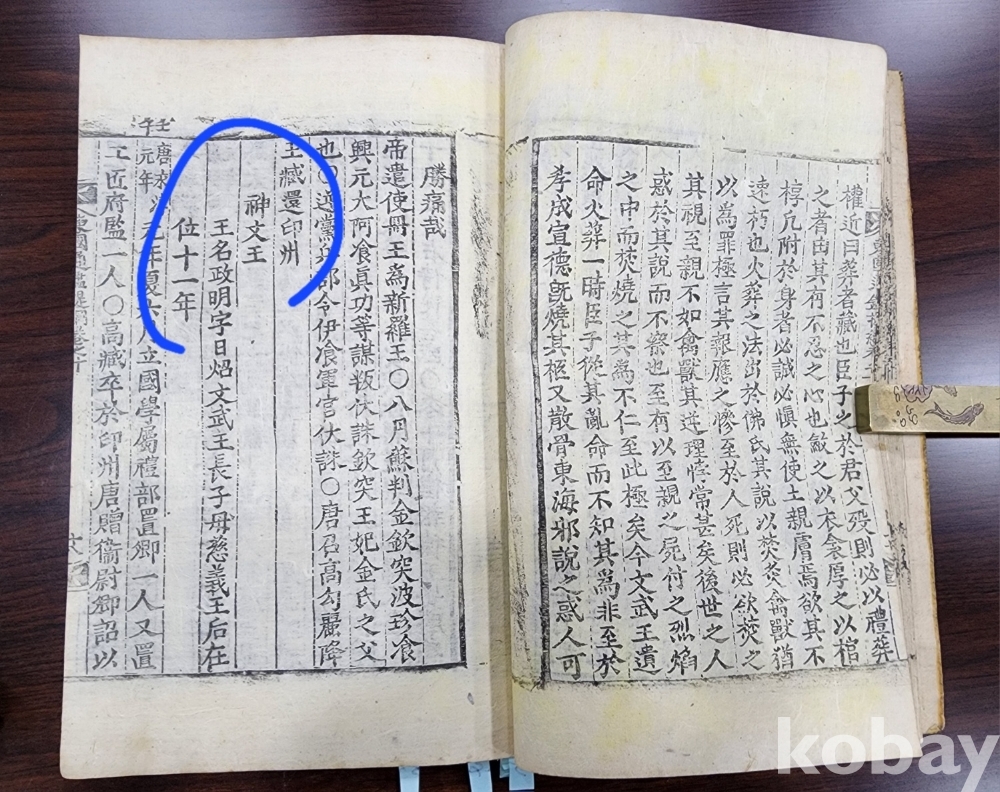 權近曰葬者藏也臣子之於君父殁則必以禮葬
之者由其有不忍之心也斂之以衣衾厚之以棺
椁凡附於身者必誠必愼無使土親膚焉欲其不
速朽也火葬之法出於佛氏其說以焚炙禽獸猶
以為罪極言其報應之慘至於人死則必欲焚之
其視至親不如禽獸其逆理悖常甚矣後世之人
惑於其說而不察也至有以至親之屍付之烈焰
之中而焚燒之其為不仁至此極矣今文武王遺
命火葬一時臣子從其亂命而不知其為非至於
孝成宣德旣燒其柩又散骨東海邪說之惑人可
勝痛哉
帝遣使冊王爲新羅王〇八月蘇判金欽突波珍飡
興元大阿飡眞功等謀叛伏誅欽突王妃金氏之父
也〇逆黨兵部令伊飡軍官伏誅〇唐召高勾麗降
王臧還印州
神文王
王名政明字日炤文武王長子母慈義王后在
位十一年
壬午
唐永
元年
二年夏六月立國學屬禮部置卿一人又置
工匠府監一人〇高臧卒於印州唐贈衛尉卿詔以
東國通鑑提綱卷
kobay